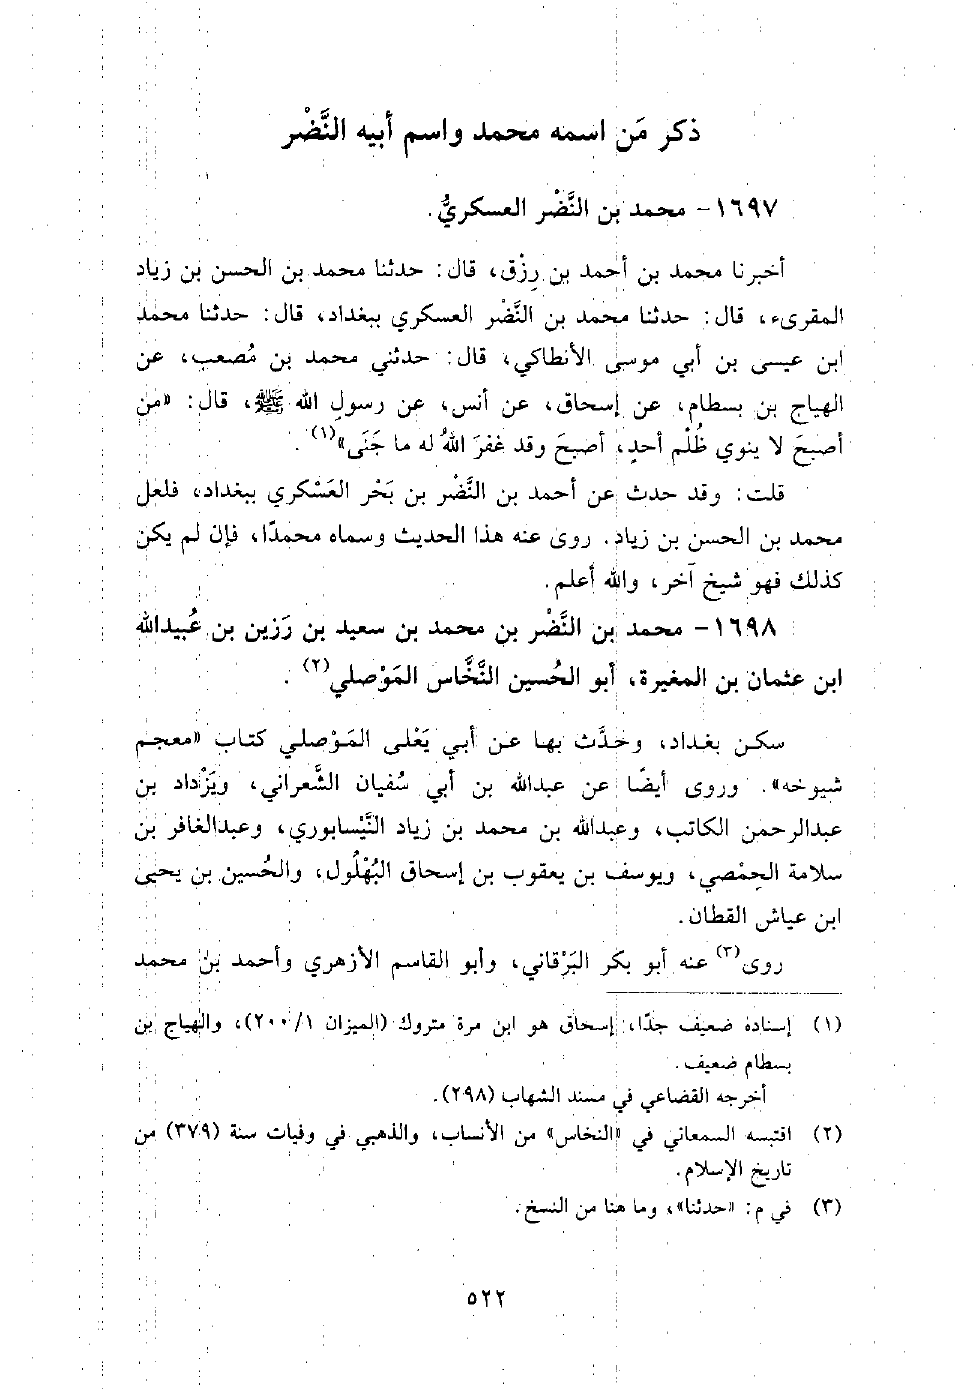 ذكر مَن اسمه محمد واسم أبيه النَّضْر
١٦٩٧- محمد بن النَّضْر العسكريُّ.
أخبرنا محمد بن أحمد بن رِزْق، قال: حدثنا محمد بن الحسن بن زياد
المقرىء، قال: حدثنا محمد بن النَّضْر العسكري ببغداد، قال: حدثنا محمد
ابن عيسى بن أبي موسى الأنطاكي، قال: حدثني محمد بن مُصعب، عن
الهياج بن بسطام، عن إسحاق، عن أنس، عن رسولِ الله ﷺ، قال: «من
أصبحَ لا ينوي ظُلْم أحدٍ، أصبحَ وقد غفرَ اللهُ له ما جَنَى»(١).
قلت: وقد حدث عن أحمد بن النَّضْر بن بَحْر العَسْكري ببغداد، فلعل
محمد بن الحسن بن زياد. روى عنه هذا الحديث وسماه محمدًا، فإن لم يكن
كذلك فهو شيخ آخر، والله أعلم.
١٦٩٨- محمد بن النَّضْر بن محمد بن سعيد بن رَزين بن عُبيدالله
ابن عثمان بن المغيرة، أبو الحُسين النَّخَّاس المَوْصلي(٢).
سكن بغداد، وحَدَّث بها عن أبي يَعْلى المَوْصلي كتاب «معجم
شيوخه». وروى أيضًا عن عبدالله بن أبي سُفيان الشَّعراني، ويَزْداد بن
عبدالرحمن الكاتب، وعبدالله بن محمد بن زياد النَّيْسابوري، وعبدالغافر بن
سلامة الحِمْصي، ويوسف بن يعقوب بن إسحاق البُهْلُول، والحُسين بن يحيى
ابن عياش القطان.
روى(٣) عنه أبو بكر البَرْقاني، وأبو القاسم الأزهري وأحمد بن محمد
(١) إسناده ضعيف جدًا، إسحاق هو ابن مرة متروك (الميزان ١/ ٢٠٠)، والهياج بن
بسطام ضعيف.
أخرجه القضاعي في مسند الشهاب (٢٩٨).
(٢) اقتبسه السمعاني في «النخاس» من الأنساب، والذهبي في وفيات سنة (٣٧٩) من
تاريخ الإسلام.
(٣) في م: «حدثنا»، وما هنا من النسخ.
٥٢٢